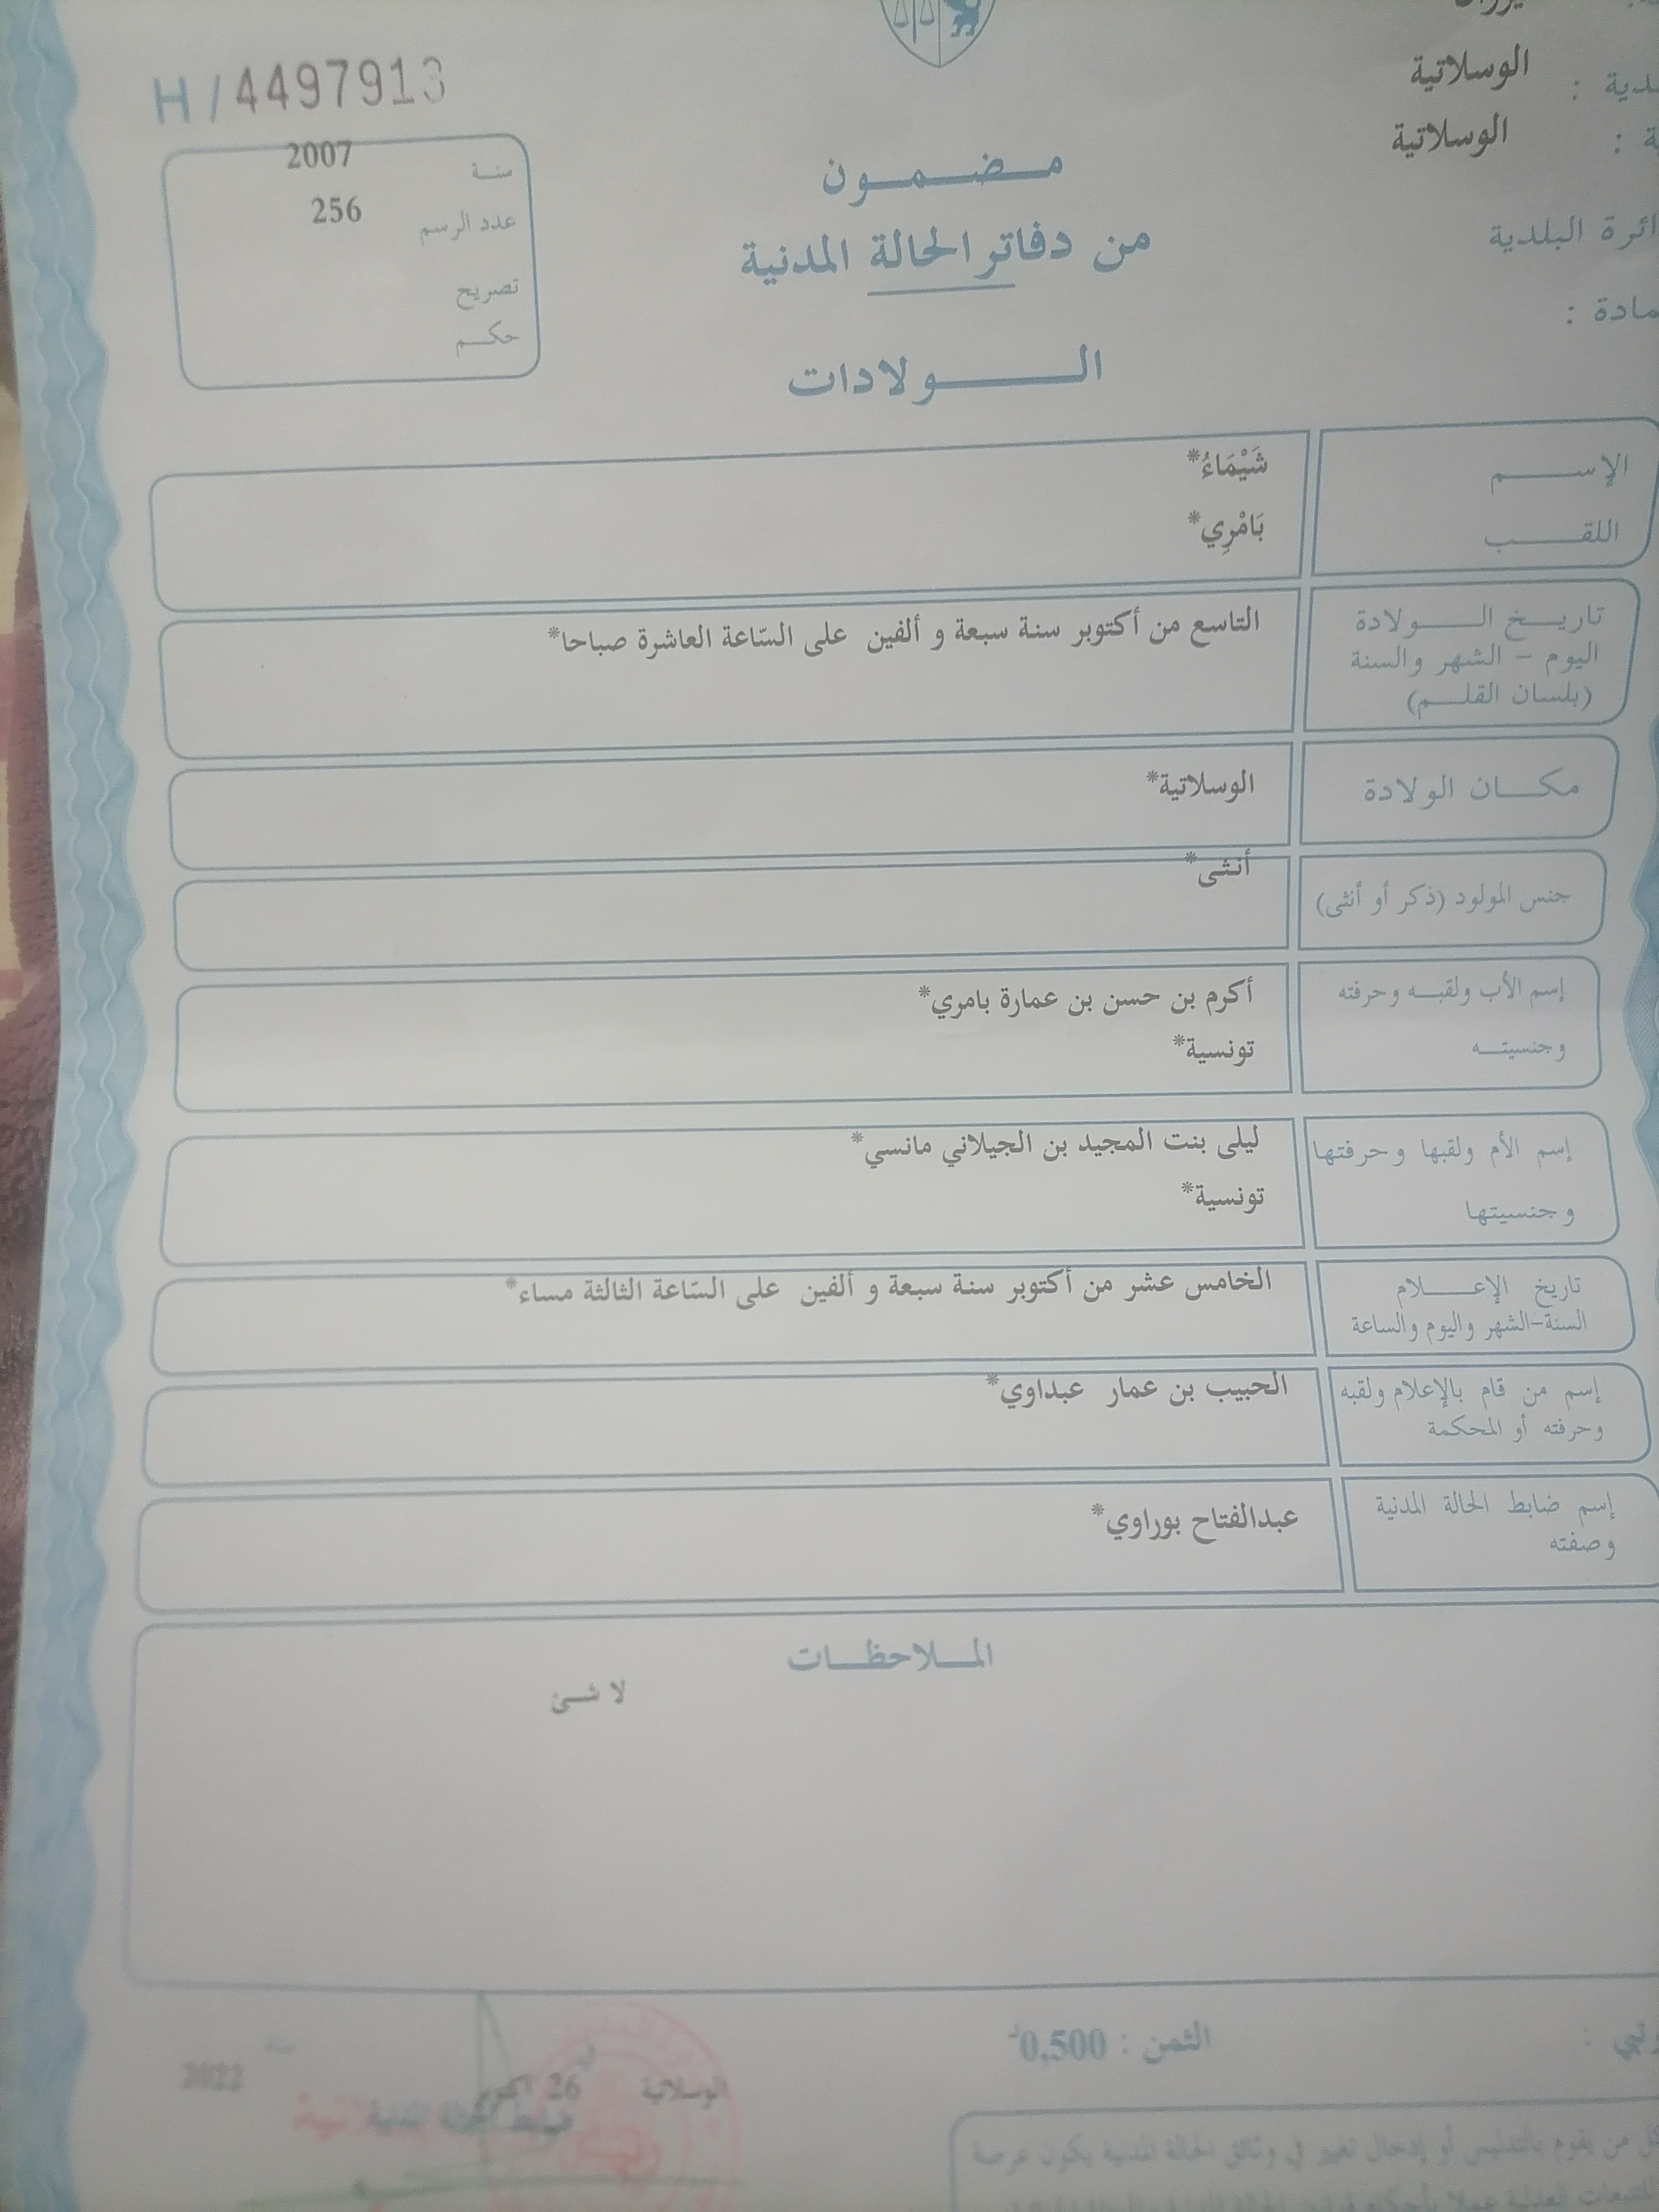 H / 4497913
الوسلاتية
الوسلاتية
سنة 2007
عدد الرسم 256
تصريح
حكم
مضمون
من دفاتر الحالة المدنية
الولادات
الإسم شَيْمَاءُ*
اللقب بَامْرِي*
تاريخ الولادة
اليوم - الشهر والسنة
(بلسان القلم)
التاسع من أكتوبر سنة سبعة و ألفين على السّاعة العاشرة صباحا*
مكان الولادة الوسلاتية*
جنس المولود (ذكر أو أنثى) أنثى*
إسم الأب ولقبه وحرفته أكرم بن حسن بن عمارة بامري*
وجنسيته تونسية*
إسم الأم ولقبها وحرفتها ليلى بنت المجيد بن الجيلاني مانسي*
وجنسيتها تونسية*
تاريخ الإعلام
السنة-الشهر واليوم والساعة
الخامس عشر من أكتوبر سنة سبعة و ألفين على السّاعة الثالثة مساء*
إسم من قام بالإعلام ولقبه
وحرفته أو المحكمة
الحبيب بن عمار عبداوي*
إسم ضابط الحالة المدنية
وصفته
عبدالفتاح بوراوي*
الملاحظات
لا شئ
الثمن : 0,500د
الوسلاتية 26 2022
ضابط الحالة المدنية
كل من يقوم بالتدليس أو إدخال تغيير في وثائق الحالة المدنية يكون عرضة